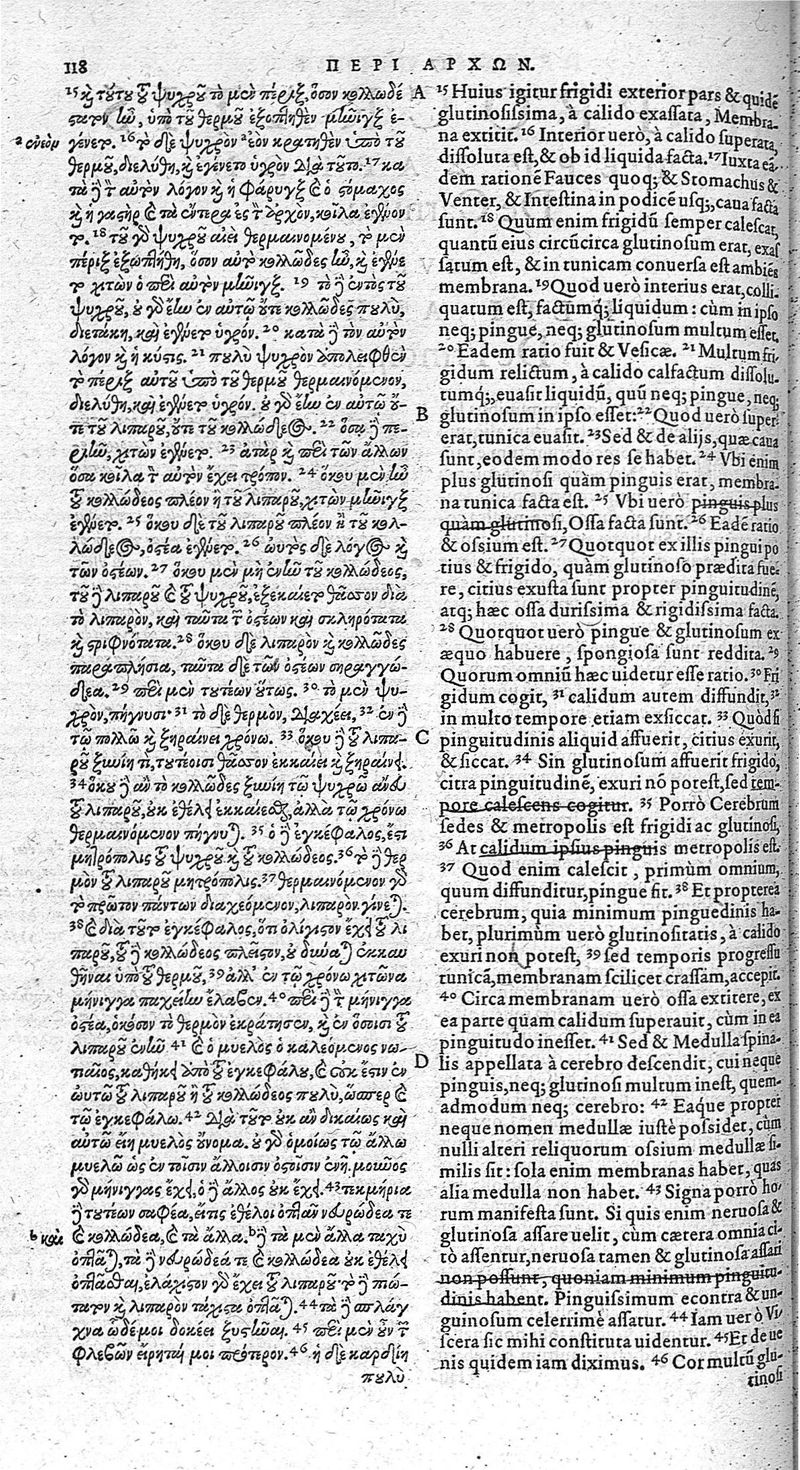 118
ΠΕΡΙ ΑΡΧΩΝ.
¹⁵ καὶ τούτου τοῦ ψυχροῦ τὸ μὲν πέριξ, ὅσον κολλωδέ
στατον ἦν, ὑπὸ τοῦ θερμοῦ ἐξοπτηθὲν μῆνιγξ ἐ-
a γένετο. ¹⁶ τὸ δὲ ψυχρὸν ᵃ κρατηθὲν ὑπὸ τοῦ
θερμοῦ, διελύθη, καὶ ἐγένετο ὑγρὸν διὰ τοῦτο. ¹⁷ κα
τὰ δὲ τὸν αὐτὸν λόγον καὶ ἡ φάρυγξ καὶ ὁ στόμαχος
καὶ ἡ γαστὴρ καὶ τὰ ἔντερα ἐς τὸν ἀρχὸν, κοῖλα ἐγένον
το. ¹⁸ τοῦ γὰρ ψυχροῦ αἰεὶ θερμαινομένου, τὸ μὲν
πέριξ ἐξωπτήθη, ὅσον αὐτοῦ κολλῶδες ἦν, καὶ ἐγένε
το χιτὼν ὁ περὶ αὐτὸν μῆνιγξ. ¹⁹ τὸ δὲ ἐντὸς τοῦ
ψυχροῦ, οὐ γὰρ ἔην ἐν αὐτῷ οὔτε κολλῶδες πολὺ,
διετάκη, καὶ ἐγένετο ὑγρόν. ²⁰ κατὰ δὲ τὸν αὐτὸν
λόγον καὶ ἡ κύστις. ²¹ πολὺ ψυχρὸν ἀπολειφθὲν
τὸ πέριξ αὐτοῦ ὑπὸ τοῦ θερμοῦ θερμαινόμενον,
διελύθη, καὶ ἐγένετο ὑγρόν. οὐ γὰρ ἔην ἐν αὐτῷ οὔ-
τε τοῦ λιπαροῦ, οὔτε τοῦ κολλώδεος. ²² ὅσῳ δὲ πε-
ριῆν, χιτὼν ἐγένετο. ²³ ἀτὰρ καὶ περὶ τῶν ἄλλων
ὅσα κοῖλα τὸν αὐτὸν ἔχει τρόπον. ²⁴ ὅκου μὲν ἦν
τοῦ κολλώδεος πλέον ἢ τοῦ λιπαροῦ, χιτὼν μῆνιγξ
ἐγένετο. ²⁵ ὅκου δὲ τοῦ λιπαροῦ πλέον ἢ τοῦ κολ-
λώδεος, ὀστέα ἐγένετο. ²⁶ ωὑτὸς δὲ λόγος καὶ
τῶν ὀστέων. ²⁷ ὅκου μὲν μὴ ἐνῆν τοῦ κολλώδεος,
τοῦ δὲ λιπαροῦ καὶ τοῦ ψυχροῦ, ἐξεκαίετο θᾶσσον διὰ
τὸ λιπαρὸν, καὶ ταῦτα τῶν ὀστέων καὶ σκληρότατα
καὶ στριφνότατα. ²⁸ ὅκου δὲ λιπαρὸν καὶ κολλῶδες
παραπλήσια, ταῦτα δὲ τῶν ὀστέων σηραγγώ-
δεα. ²⁹ περὶ μὲν τουτέων οὕτως. ³⁰ τὸ μὲν ψυ-
χρὸν, πήγνυσι· ³¹ τὸ δὲ θερμὸν, διαχέει, ³² ἐν δὲ
τῷ πολλῷ καὶ ξηραίνει χρόνῳ. ³³ ὅκου δὲ τοῦ λιπα-
ροῦ ξυνίῃ τι, τουτέοισι θᾶσσον ἐκκαίει καὶ ξηραίνει.
³⁴ ὅκου δὲ ἂν τὸ κολλῶδες ξυνίῃ τῷ ψυχρῷ ἄνευ
τοῦ λιπαροῦ, οὐκ ἐθέλει ἐκκαίεσθαι, ἀλλὰ τῷ χρόνῳ
θερμαινόμενον πήγνυται. ³⁵ ὁ δὲ ἐγκέφαλος, ἐστὶ
μητρόπολις τοῦ ψυχροῦ καὶ τοῦ κολλώδεος. ³⁶ τὸ δὲ θερ
μὸν τοῦ λιπαροῦ μητρόπολις. ³⁷ θερμαινόμενον γὰρ
τὸ πρῶτον πάντων διαχεόμενον, λιπαρὸν γίνεται.
³⁸ καὶ διὰ τοῦτο ὁ ἐγκέφαλος, ὅτι ὀλίγιστον ἔχει τοῦ λι
παροῦ, τοῦ δὲ κολλώδεος πλεῖστον, οὐ δύναται ἐκκαυ
θῆναι ὑπὸ τοῦ θερμοῦ, ³⁹ ἀλλ᾽ ἐν τῷ χρόνῳ χιτῶνα
μήνιγγα παχείην ἔλαβεν. ⁴⁰ περὶ δὲ τὴν μήνιγγα
ὀστέα, ὁκόσον τὸ θερμὸν ἐκράτησεν, καὶ ἐν ὁποῖσι τοῦ
λιπαροῦ ἐνῆν. ⁴¹ καὶ ὁ μυελὸς ὁ καλεόμενος νω-
τιαῖος, καθήκει ἀπὸ τοῦ ἐγκεφάλου, καὶ οὐκ ἔστιν ἐν
ωὑτῷ τοῦ λιπαροῦ ἢ τοῦ κολλώδεος πουλὺ, ὥσπερ καὶ
τῷ ἐγκεφάλῳ. ⁴² διὰ τοῦτο οὐκ ἂν δικαίως καὶ
αὐτῷ εἴη μυελὸς οὔνομα. οὐ γὰρ ὁμοίως τῷ ἄλλῳ
μυελῷ ὡς ἐν τοῖσιν ἄλλοισιν ὀστοῖσιν ἐνῇ. μοῦνος
γὰρ μήνιγγας ἔχει, ὁ δὲ ἄλλος οὐκ ἔχει. ⁴³ τεκμήρια
δὲ τουτέων σαφέα, εἴ τις ἐθέλοι ὀπτᾶν νευρώδεα τε
b καὶ κολλώδεα, καὶ τὰ ἄλλα. ᵇ τὰ μὲν ἄλλα ταχὺ
ὀπτᾶται, τὰ δὲ νευρώδεά τε καὶ κολλώδεα οὐκ ἐθέλει
ὀπτᾶσθαι, ἐλάχιστον γὰρ ἔχει τοῦ λιπαροῦ. τὸ δὲ πιό-
τατον καὶ λιπαρὸν τάχιστα ὀπτᾶται. ⁴⁴ τὰ δὲ σπλάγ
χνα ὧδέ μοι δοκέει ξυστῆναι. ⁴⁵ περὶ μὲν οὖν τῶν
φλεβῶν εἴρηταί μοι πρότερον. ⁴⁶ ἡ δὲ καρδίη
πουλὺ
A ¹⁵ Huius igitur frigidi exterior pars & quidē
glutinosissima, à calido exassata, Membra-
na extitit. ¹⁶ Interior uerò, à calido superata,
dissoluta est, & ob id liquida facta. ¹⁷ Iuxta ea-
dem rationē Fauces quoq; & Stomachus &
Venter, & Intestina in podicē usq;, caua facta
sunt. ¹⁸ Quum enim frigidū semper calescat,
quantū eius circūcirca glutinosum erat, exas
satum est, & in tunicam conuersa est ambiēs
membrana. ¹⁹ Quod uerò interius erat, colli-
quatum est, factumq; liquidum: cùm in ipso
neq; pingue, neq; glutinosum multum esset.
²⁰ Eadem ratio fuit & Vesicæ. ²¹ Multum fri-
gidum relictum, à calido calfactum dissolu-
tumq;, euasit liquidū, quū neq; pingue, neq;
B glutinosum in ipso esset: ²² Quod uerò super-
erat, tunica euasit. ²³ Sed & de alijs, quæ caua
sunt, eodem modo res se habet. ²⁴ Vbi enim
plus glutinosi quàm pinguis erat, membra-
na tunica facta est. ²⁵ Vbi uerò pinguis plus
quàm glutinosi, Ossa facta sunt. ²⁶ Eadē ratio
& ossium est. ²⁷ Quotquot ex illis pingui po
tius & frigido, quàm glutinoso prædita fue-
re, citius exusta sunt propter pinguitudinē,
atq; hæc ossa durissima & rigidissima facta.
²⁸ Quotquot uerò pingue & glutinosum ex
æquo habuere, spongiosa sunt reddita. ²⁹
Quorum omniū hæc uidetur esse ratio. ³⁰ Fri
gidum cogit, ³¹ calidum autem diffundit, ³²
in multo tempore etiam exsiccat. ³³ Quòd si
C pinguitudinis aliquid affuerit, citius exurit,
& siccat. ³⁴ Sin glutinosum affuerit frigido,
citra pinguitudinē, exuri nō potest, sed tem-
pore calescens cogitur. ³⁵ Porrò Cerebrum
sedes & metropolis est frigidi ac glutinosi,
³⁶ At calidum ipsius pinguis metropolis est.
³⁷ Quod enim calescit, primùm omnium,
quum diffunditur, pingue fit. ³⁸ Et propterea
cerebrum, quia minimum pinguedinis ha-
bet, plurimùm uerò glutinositatis, à calido
exuri non potest, ³⁹ sed temporis progressu
tunicā, membranam scilicet crassam, accepit.
⁴⁰ Circa membranam uerò ossa extitere, ex
ea parte quam calidum superauit, cùm in ea
pinguitudo inesset. ⁴¹ Sed & Medulla spina-
D lis appellata à cerebro descendit, cui neque
pinguis, neq; glutinosi multum inest, quem-
admodum neq; cerebro: ⁴² Eaq́ue propter
neque nomen medullæ iustè possidet, cùm
nulli alteri reliquorum ossium medullæ si-
milis sit: sola enim membranas habet, quas
alia medulla non habet. ⁴³ Signa porrò ho-
rum manifesta sunt. Si quis enim neruosa &
glutinosa assare uelit, cùm cætera omnia ci-
tò assentur, neruosa tamen & glutinosa assari
non possunt, quoniam minimum pinguitu-
dinis habent. Pinguissimum econtra & un-
guinosum celerrimè assatur. ⁴⁴ Iam uerò Vi-
scera sic mihi constituta uidentur. ⁴⁵ Et de ue
nis quidem iam diximus. ⁴⁶ Cor multū glu-
tinosi